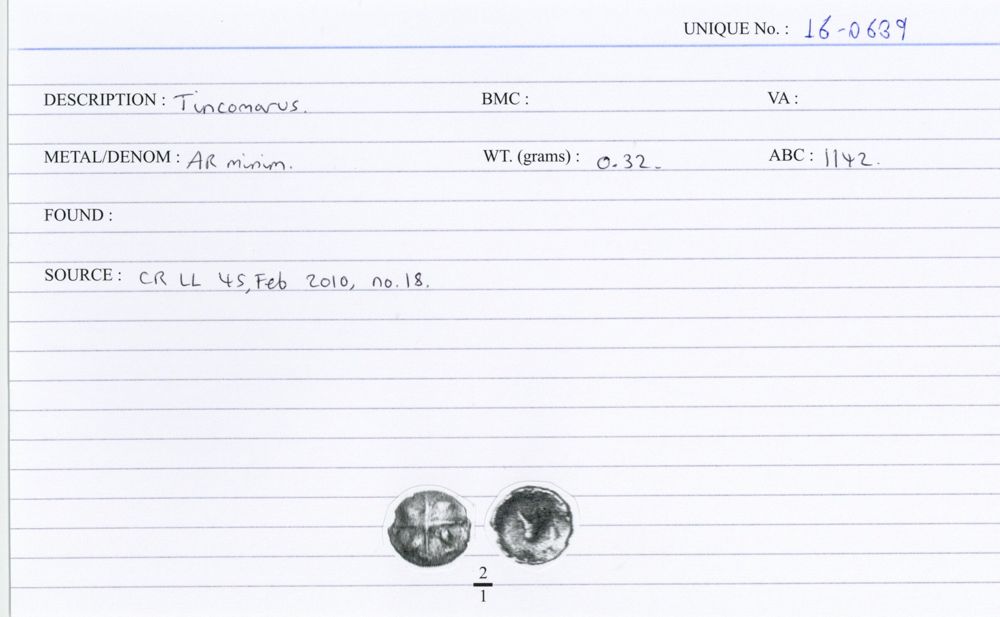 UNIQUE No. : 16-0639
DESCRIPTION : Tincomarus. BMC : VA :
METAL/DENOM : AR minim. WT. (grams) : 0.32. ABC : 1142.
FOUND :
SOURCE : CR LL 45, Feb 2010, no.18.
2
1